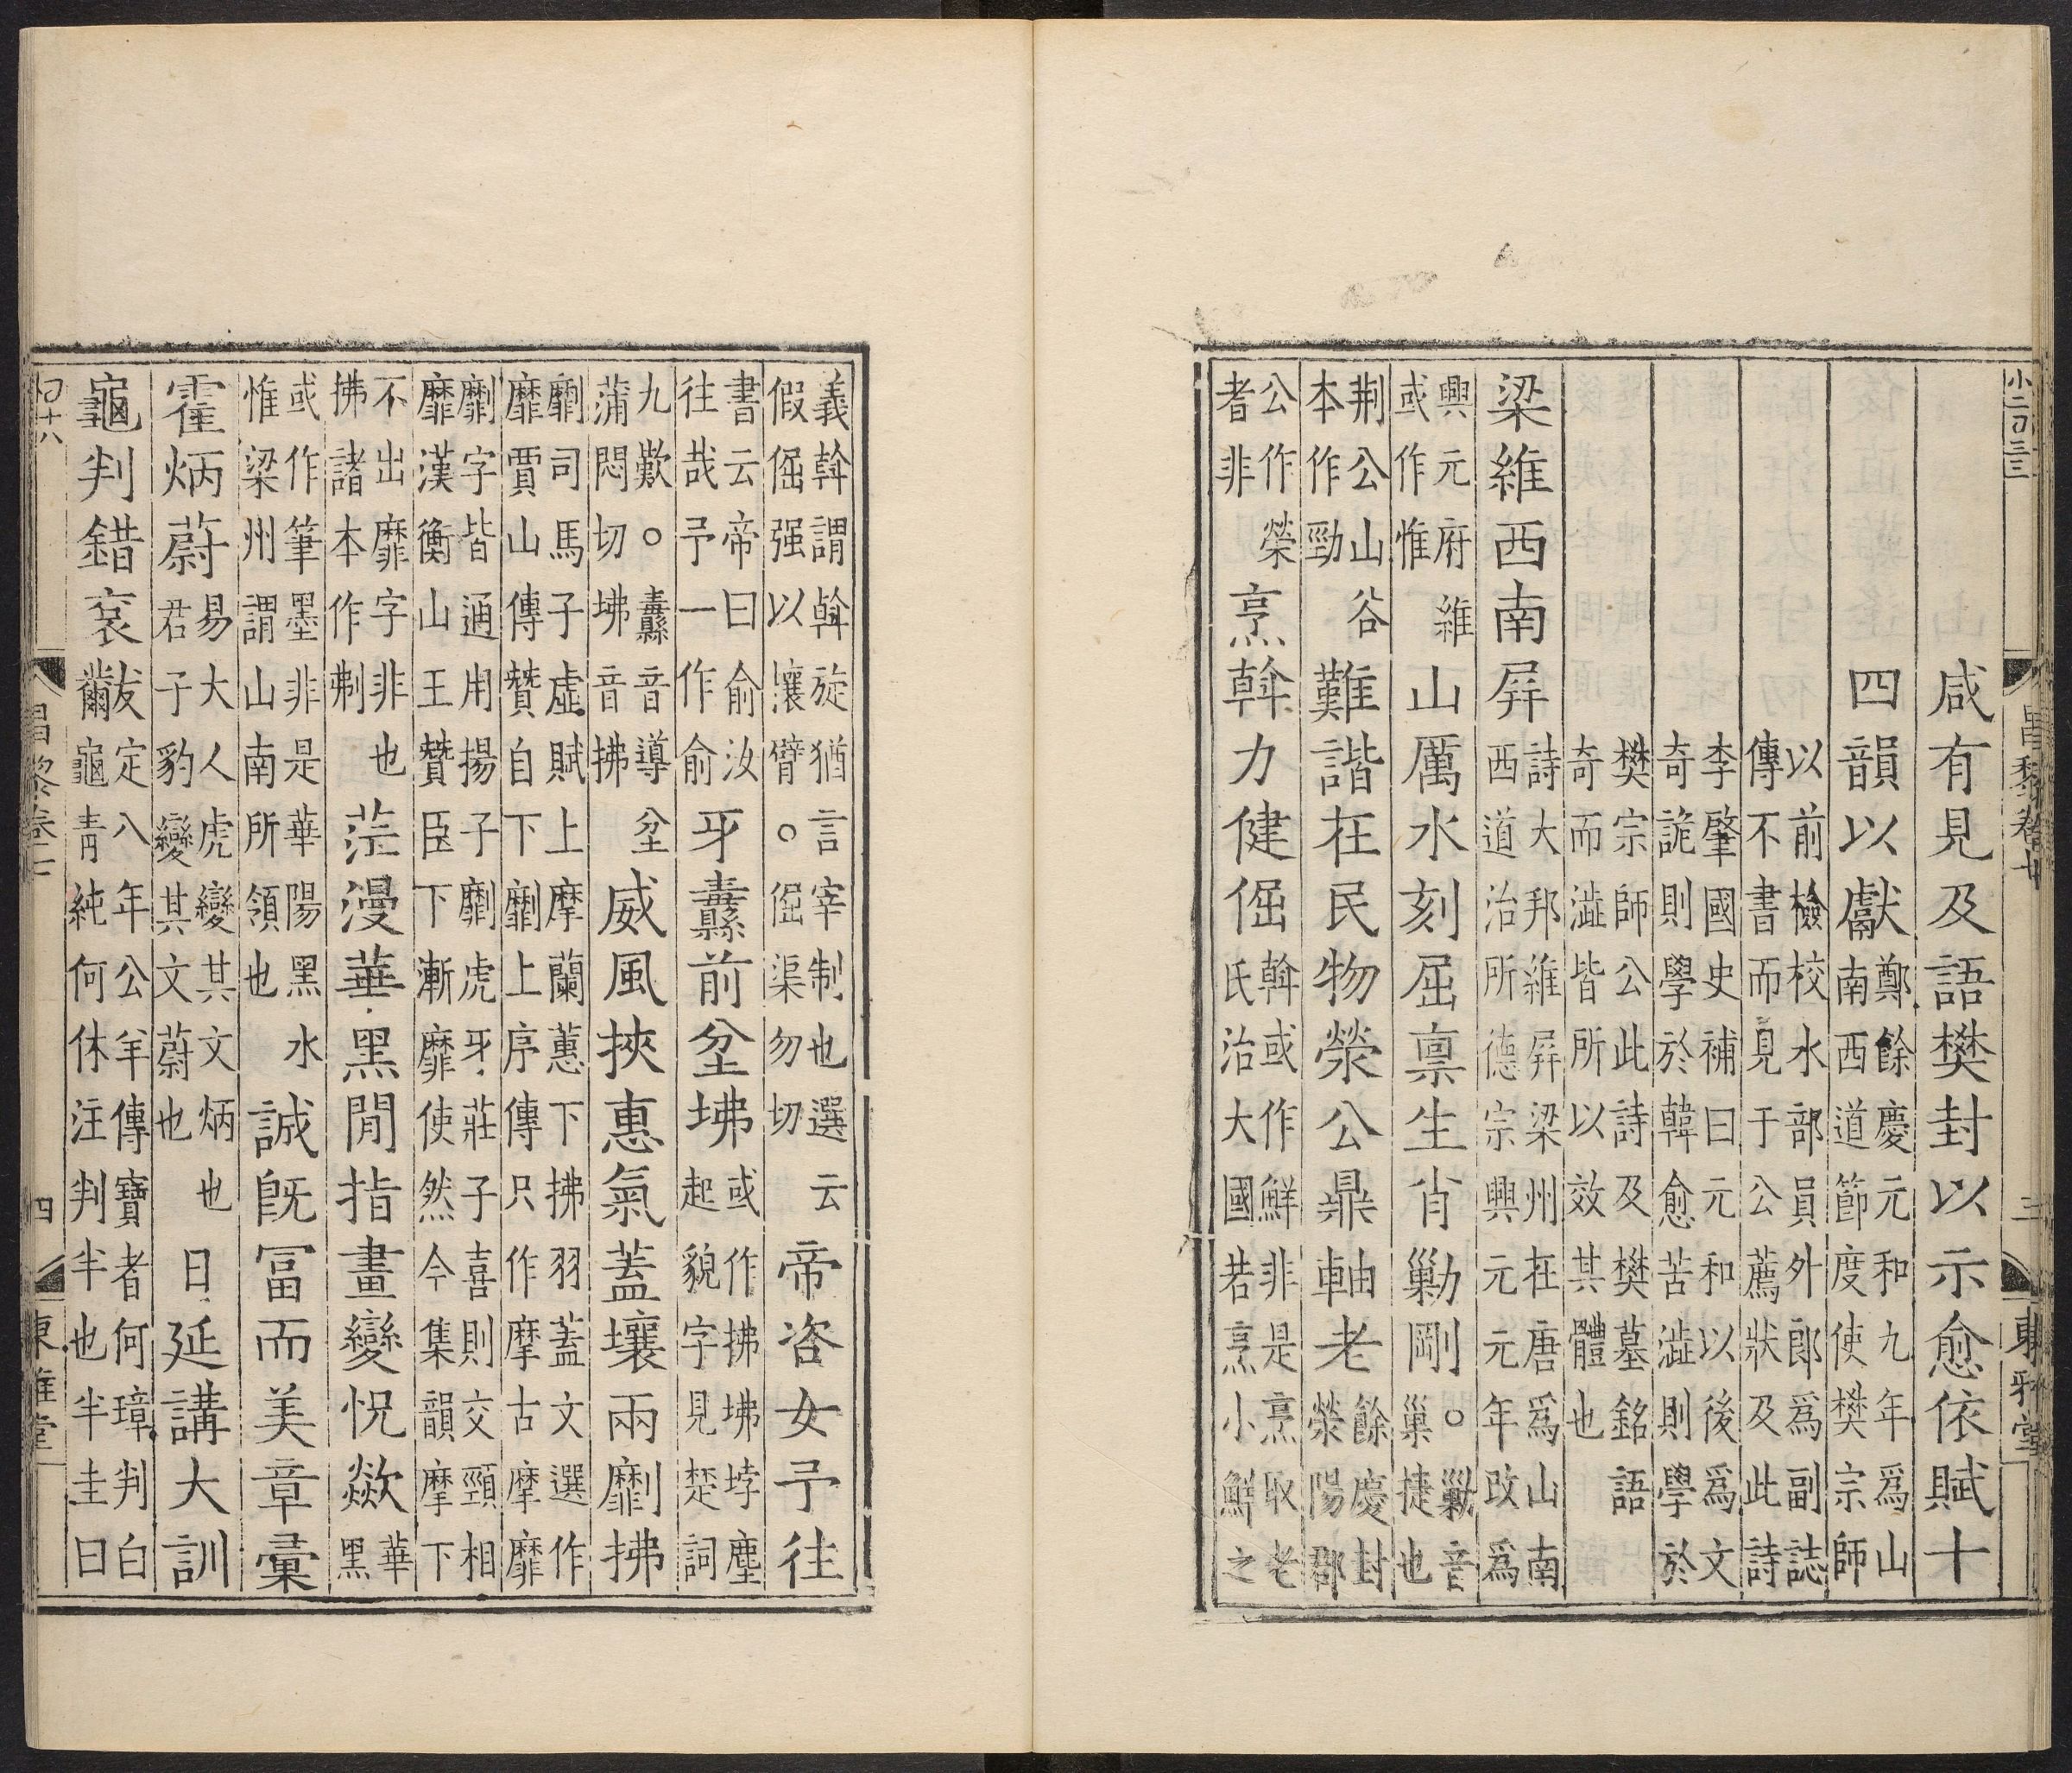 咸有見及語樊封以示愈依賦十
四韻以獻鄭餘慶元和九年爲山南西道節度使樊宗師
以前檢校水部員外郎爲副誌傳不書而見于公薦狀及此詩
李肇國史補曰元和以後爲文奇詭則學於韓愈苦澁則學於
樊宗師公此詩及樊墓銘語奇而澁皆所以效其體也
梁維西南屛詩大邦維屛梁州在唐爲山南西道治所德宗興元元年改爲
興元府維或作惟山厲水刻屈稟生肖勦剛。勦音巢捷也
荆公山谷本作勁難諧在民物滎公鼎軸老餘慶封滎陽郡
公作滎者非烹斡力健倔斡或作鮮非是烹取老氏治大國若烹小鮮之
義斡謂斡旋猶言宰制也選云假倔强以攘臂。倔渠勿切帝咨女予往
書云帝曰俞汝往哉予一作俞牙纛前坌坲或作拂坲埻塵起貌字見楚詞
九歎。纛音導坌蒲悶切坲音拂威風挾惠氣蓋壤兩劘拂
劘司馬子虛賦上摩蘭蕙下拂羽蓋文選作靡賈山傳贊自下劘上序傳只作摩古摩靡
劘字皆通用揚子劘虎牙莊子喜則交頸相靡漢衡山王贊臣下漸靡使然今集韻摩下
不出靡字非也拂諸本作刜茫漫華黑閒指畫變怳欻華黑
或作筆墨非是華陽黑水惟梁州謂山南所領也誠旣冨而美章彙
霍炳蔚易大人虎變其文炳也君子豹變其文蔚也日延講大訓
龜判錯袞黻友定八年公羊傳寶者何璋判白龜靑純何休注判半也半圭曰
小二百三三
昌黎卷七
三
東雅堂
四
東雅堂